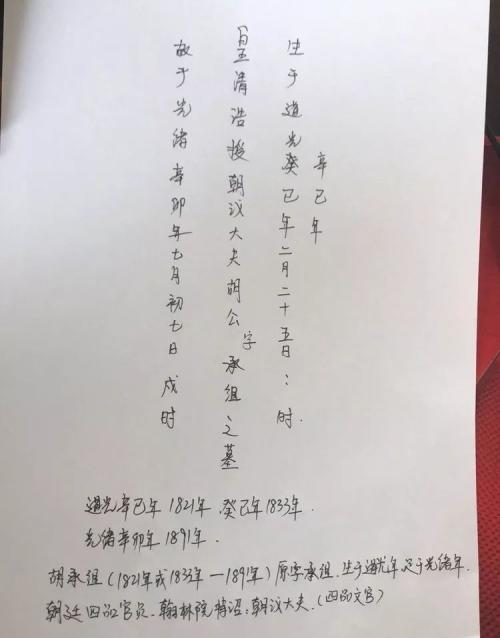 辛巳年
生于道光癸巳年二月二十五日：时.
皇清浩授朝议大夫胡公字承组之墓
故于光绪辛卯年七月初七日戌时
道光辛巳年 1821年. 癸巳年1833年.
光绪辛卯年 1891年.
胡承组(1821年或1833年—1891年)原字承组.生于道光年.卒于光绪年.
朝廷四品官员.翰林院特诏.朝议大夫.(四品文官)